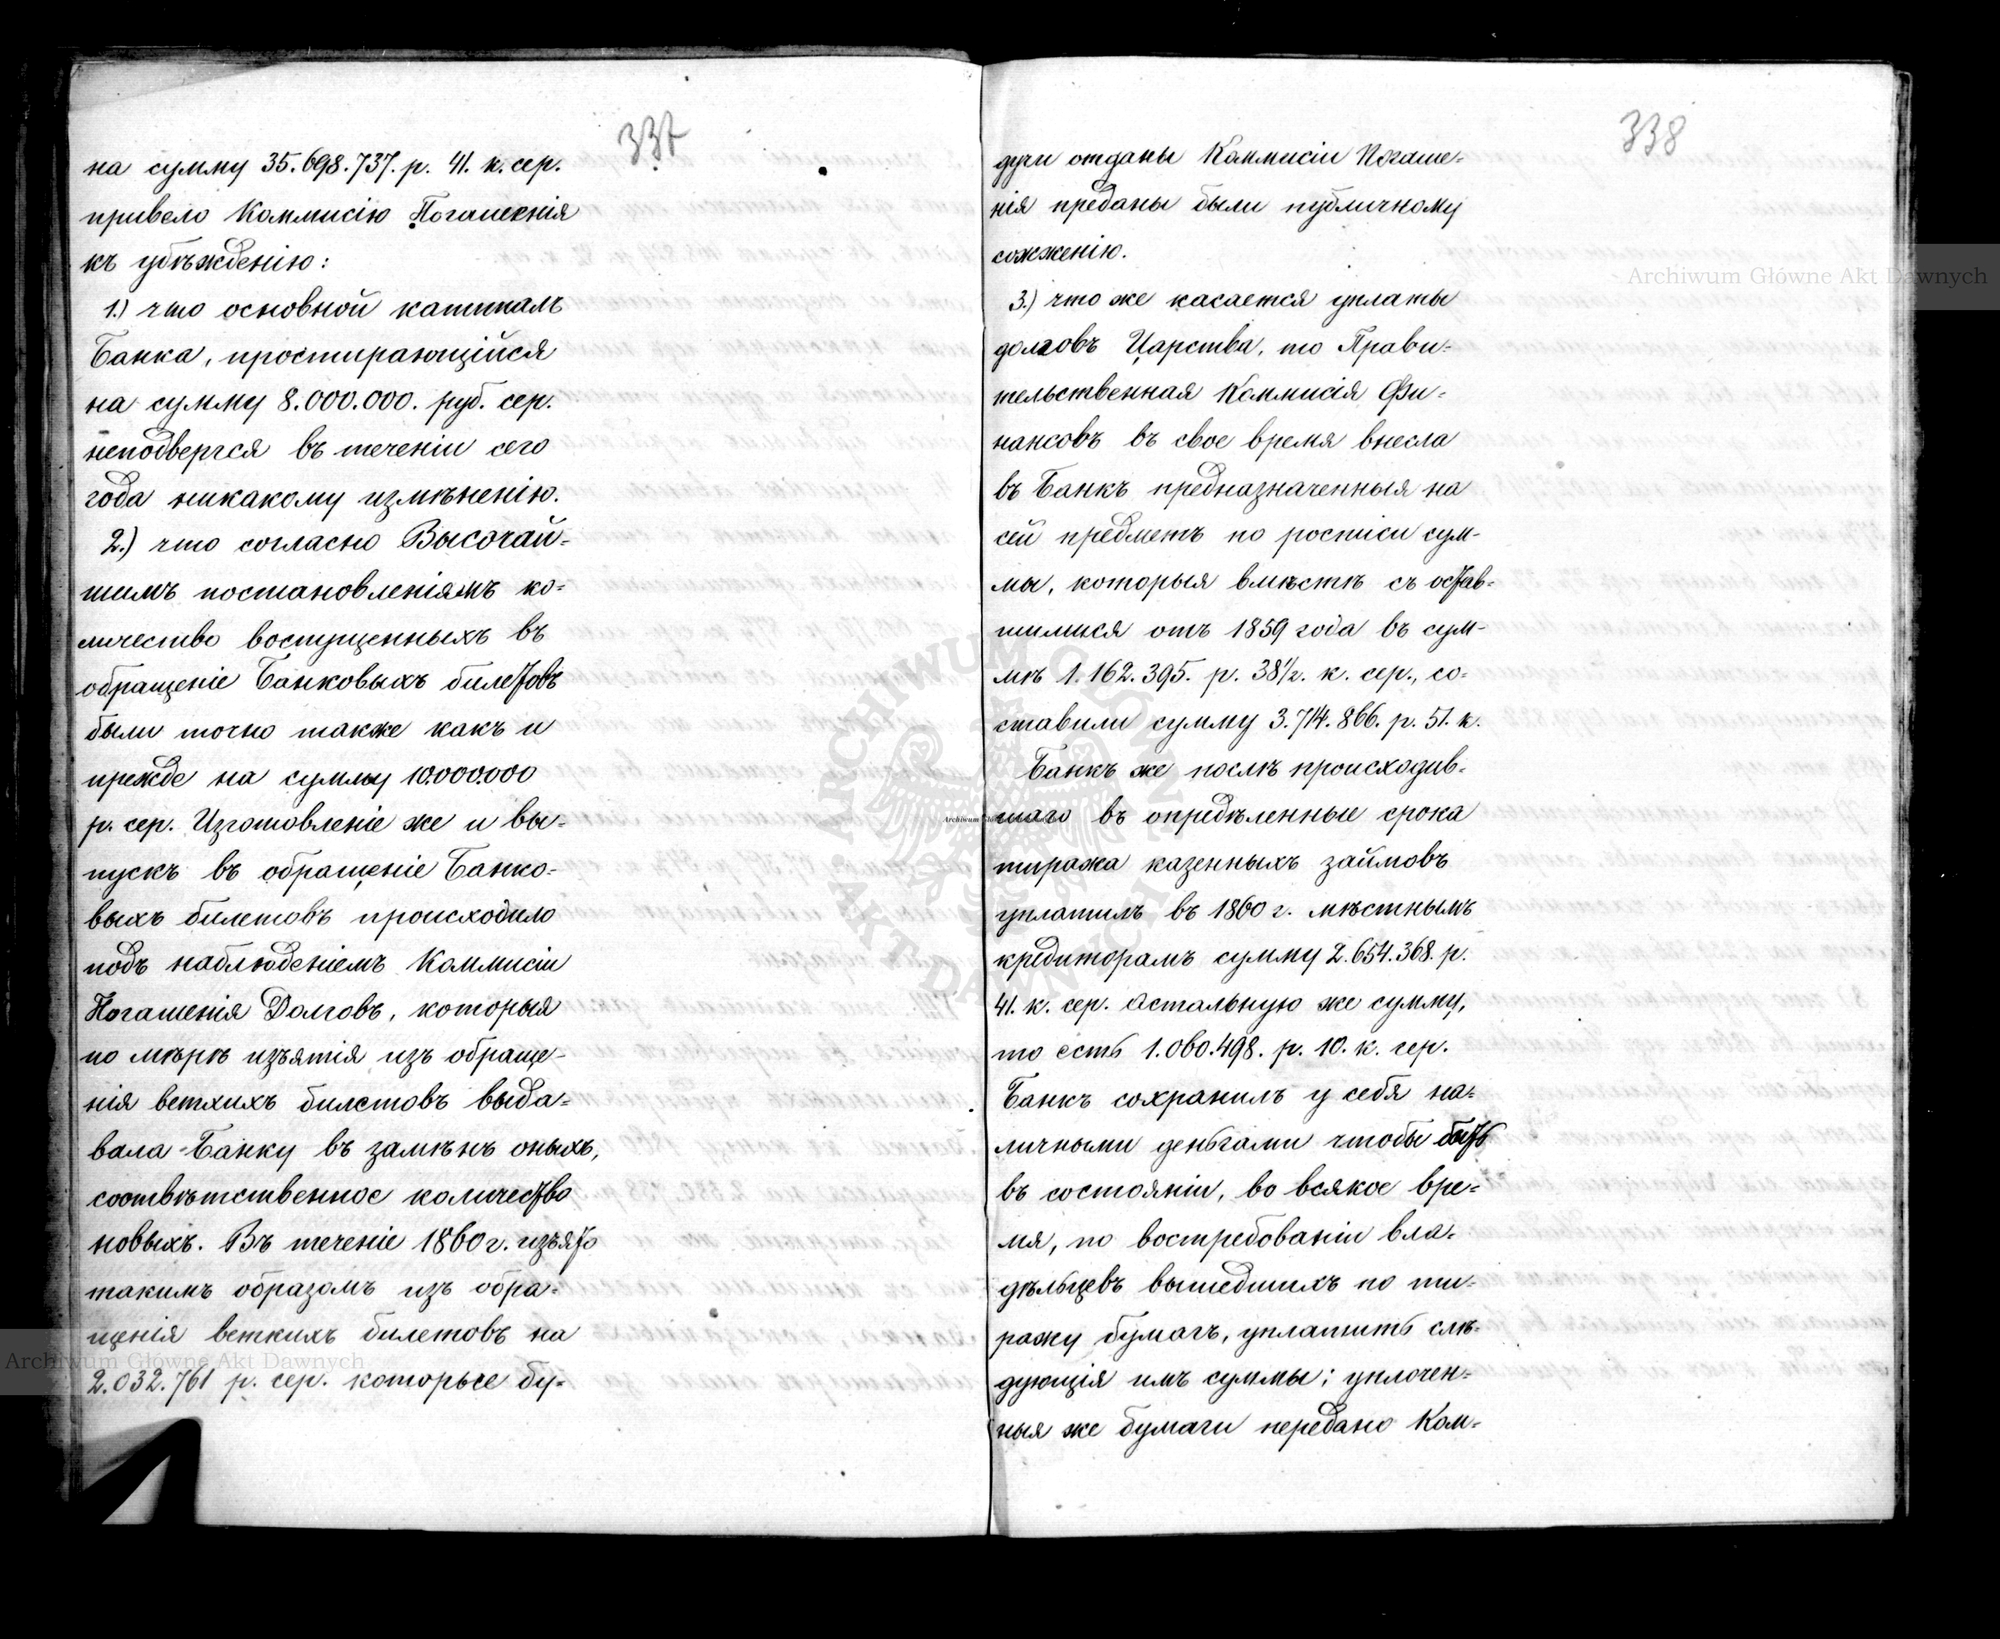 337
на сумму 35.698.737. р. 41. к. сер.
привело Коммисію Погашенія
къ убѣжденію:
1.) что основной капиталъ
Банка, простирающійся
на сумму 8.000.000. руб. сер.
неподвергся въ теченіи сего
года никакому измѣненію.
2.) что согласно Высочай=
шимъ постановленіямъ ко=
личество воспущенныхъ въ
обращеніе Банковыхъ билетовъ
были точно также какъ и
прежде на сумму 10.000.000
р. сер. Изготовленіе же и вы=
пускъ въ обращеніе Банко=
выхъ билетовъ происходило
подъ наблюденіемъ Коммисіи
Погашенія Долговъ, которыя
по мѣрѣ изъятія изъ обраще=
нія ветхихъ билетовъ выда=
вала Банку въ замѣнъ оныхъ,
соотвѣтственное количество
новыхъ. Въ теченіе 1860 г. изъято
такимъ образомъ изъ обра=
щенія ветхихъ билетовъ на
2.032.761 р. сер. которые бу=
338
дучи отданы Коммисіи Погаше=
нія преданы были публичному
сожженію.
3.) что же касается уплаты
долговъ Царства, то Прави=
тельственная Коммисія Фи=
нансовъ въ свое время внесла
въ Банкъ предназначенныя на
сей предметъ по росписи сум=
мы, которыя вмѣстѣ съ остав=
шимися отъ 1859 года въ сум=
мѣ 1.162.395. р. 38½. к. сер., со=
ставили сумму 3.714.866. р. 51. к.
Банкъ же послѣ происходив=
шаго въ опредѣленные срока
тиража казенныхъ займовъ
уплатилъ въ 1860 г. мѣстнымъ
кредиторамъ сумму 2.654.368. р.
41. к. сер. Остальную же сумму,
то есть 1.060.498. р. 10. к. сер.
Банкъ сохранилъ у себя на=
личными деньгами чтобы быть
въ состояніи, во всякое вре=
мя, по востребованіи вла=
дѣльцевъ вышедшихъ по ти=
ражу бумагъ, уплатить слѣ=
дующія имъ суммы; уплочен=
ныя же бумаги передано Ком=
Archiwum Główne Akt Dawnych
Archiwum Główne Akt Dawnych
ARCHIWUM GŁÓWNE AKT DAWNYCH